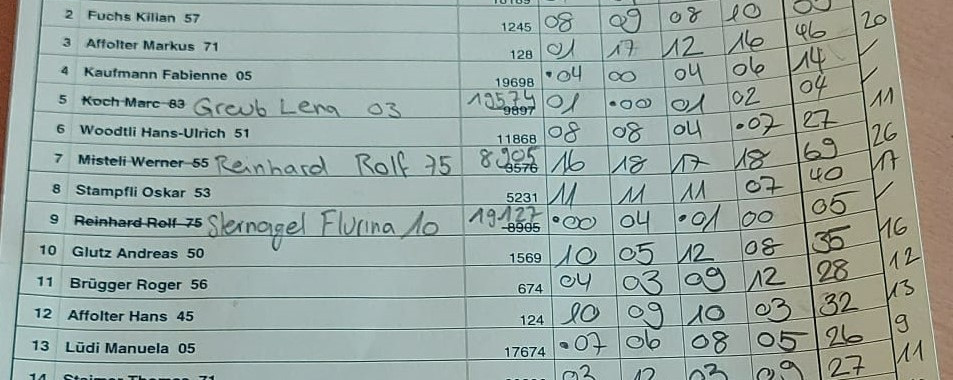 2 Fuchs Kilian 57 1245 08 09 08 10
3 Affolter Markus 71 128 01 17 12 16 46 20
4 Kaufmann Fabienne 05 19698 •04 00 04 06 14 /
5 Koch Marc 83 Greub Lena 03 19574 9897 01 •00 01 02 04 /
6 Woodtli Hans-Ulrich 51 11868 08 08 04 •07 27 11
7 Misteli Werner 55 Reinhard Rolf 75 8905 9576 16 18 17 18 69 26
8 Stampfli Oskar 53 5231 11 11 11 07 40 17
9 Reinhard Rolf 75 Sternagel Flurina 10 19127 8905 •00 04 •01 00 05 /
10 Glutz Andreas 50 1569 10 05 12 08 35 16
11 Brügger Roger 56 674 04 03 09 12 28 12
12 Affolter Hans 45 124 10 09 10 03 32 13
13 Lüdi Manuela 05 17674 •07 06 08 05 26 9
14 71 03 12 03 09 27 11